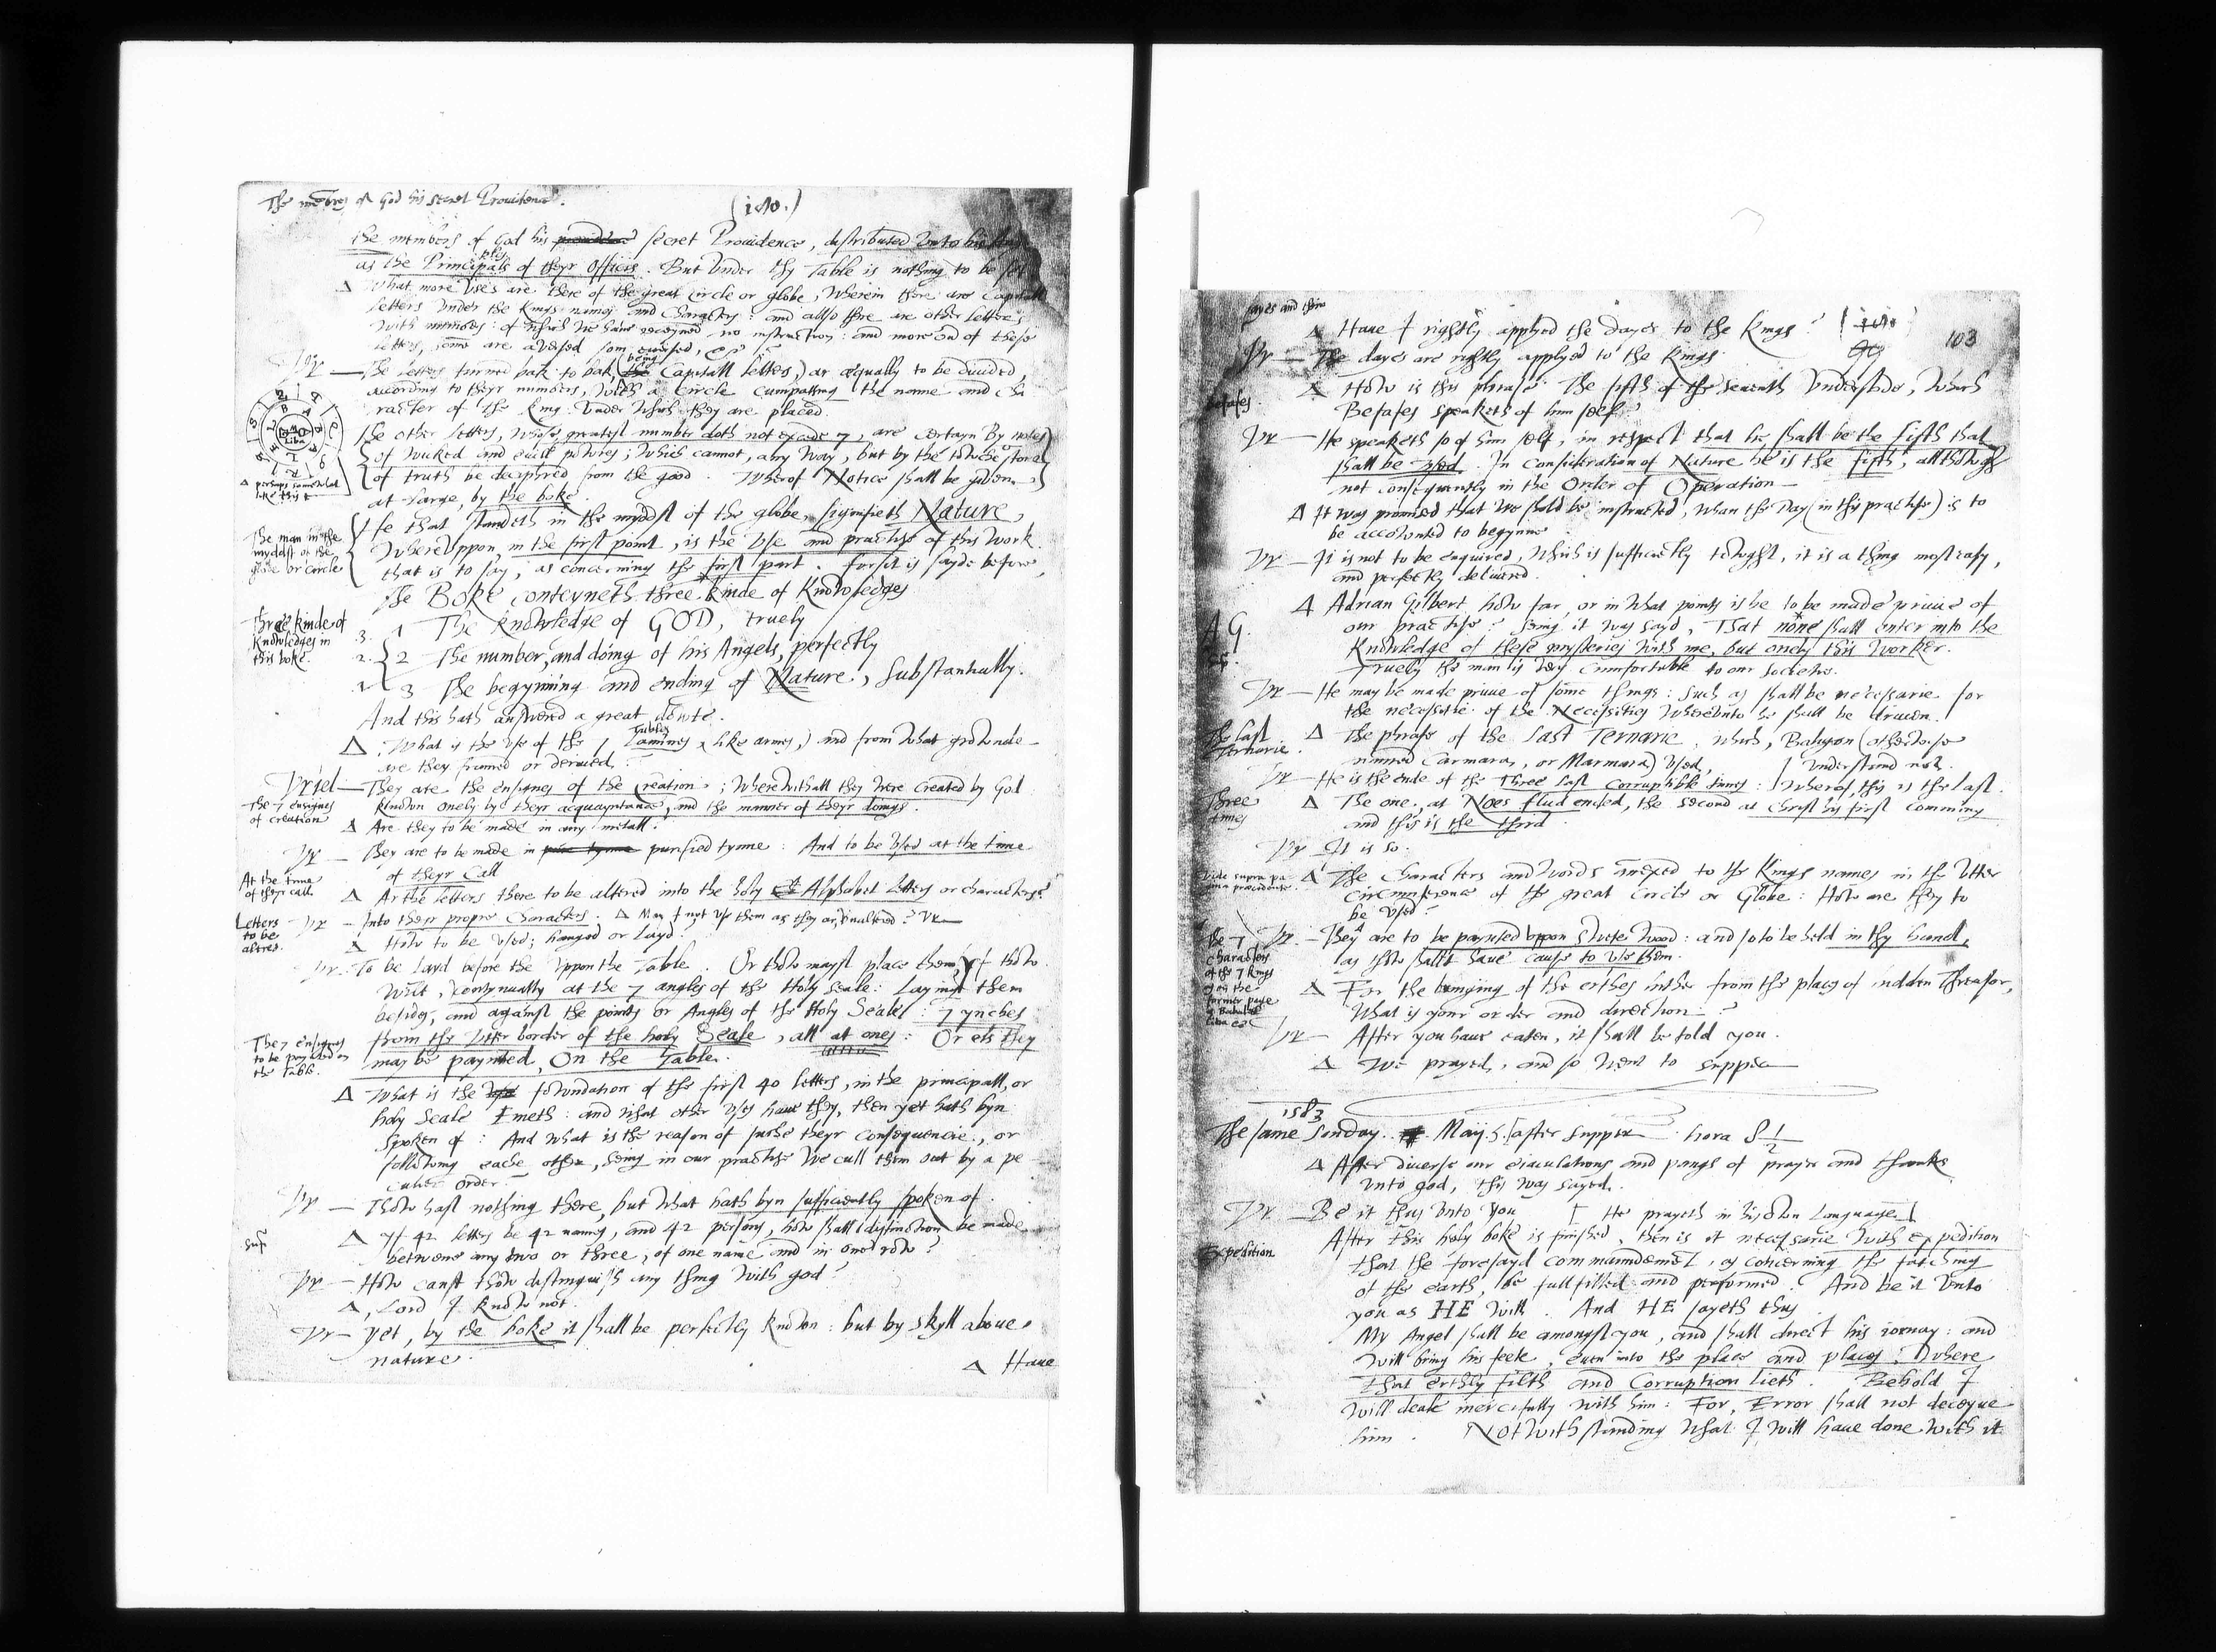 The mēbres of God his secret Providence.
(180.)
the members of God his providence secret Providence, distributed vnto his
as the Principals of theyr Offices. But vnder thy Table is nothing to be set
ples
Δ What more vses are there of the great circle or globe, Wherein there are Capitall
letters vnder the Kings names and Characters: and allso there are other letters
with numbers: of which we haue receyued no instruction: and moreouer of these
letters, some are aversed som eversed, &c?
Vr — The letters turned bak to bak (the Capitall letters,) ar æqually to be diuided,
being
according to theyr numbers, with a Circle cumpassing the name and cha
racter of the King vnder which they are placed.
The other letters, whose greatest number doth not excede 7, are certayn By notes
of wicked and euill powres; which cannot, any way, but by the towche stone
of truth be deciphred from the good. Wherof Notice shall be giuen
at large, by the boke.
Liba
Δ perhaps somwhat
like this
He that standeth in the myddst of the globe, signifieth Nature,
Wherevppon, in the first point, is the Vse and practise of this work.
that is to say, as concerning the first part. For it is sayde before
The man in the
myddst of the
globe or circle
The Boke conteyneth three kinde of Knowledges
Three kinde of
Knowledges in
this boke.
3. 1 The Knowledge of GOD, truely
2. 2 The number, and doing of his Angels, perfectly
1 3 The begynning and ending of Nature, Substantially.
And this hath answered a great dowte.
Δ What is the vse of the 7 Lamines, (like armes,) and from what grownde
Tables
are they framed or deriued?
Vriel — They are the ensignes of the Creation; Wherewithall they were created by God
Known onely bye theyr acquayntance, and the manner of theyr doings.
The 7 ensignes
of creation
Δ Are they to be made in any metall?
Vr — They are to be made in pure tynne purified tynne: And to be vsed at the time
of theyr Call
At the time
of theyr call
Δ Ar the letters there to be altered into the holy Alphabet letters or characters?
Vr — Into their propre Characters. Δ May I not vse them as they ar, vnaltered? Vr —
Letters
to be
altred.
Δ How to be vsed; hanged or layd?
Vr. To be layd before the vppon the Table. Or thow mayst place them, yf thow
wilt, contynually at the 7 angles of the Holy Seale: Laying them
besides, and against the points or Angles of the Holy Seale: 7 ynches
from the vtter border of the holy Seale, all at ones: Or els they
may be paynted, On the Table.
The 7 ensignes
to be paynted on
the table.
Δ What is the fowndation of the first 40 letters, in the principall, or
holy Seale Emeth: and what other vses haue they, then yet hath byn
Spoken of: And what is the reason of suche theyr consequencie, or
following eache other, seing in our practise we cull them out by a pe
culier order.
Vr — Thow hast nothing there, but what hath byn sufficiently spoken of.
Δ yf 42 letters be 42 names, and 42 persons, how shall distinction be made
betwene any two or three, of one name and in one row?
Vr — How canst thow distinguish any thing with god?
Δ, Lord I know not.
Vr — yet, by the boke it shall be perfectly known: but by skyll above
nature.
Δ Haue
Δ Haue I rightly applyed the dayes to the Kings?
103
Vr — The dayes are rightly applyed to the Kings.
Δ How is this phrase The fifth of the seventh vnderstode, which
Befafes speaketh of him self?
Befafes.
Vr — He speaketh so of him self, in respect that he shall be the fifth that
shall be vsed. In consideration of Nature he is the fifth, allthowgh
not consequently in the Order of Operation —
Δ It was promised that we shold be instructed, whan the Day (in this practise) is to
be accownted to begynne
Vr — It is not to be enquired, which is sufficiently towght, it is a thing most easy,
and perfectly deliuered.
Δ Adrian Gilbert how far, or in what points is he to be made priuie of
our practise? Seing it was sayd, That none shall enter into the
Knowledge of these mysteries with me, but onely this Worker.
Truely the man is very Cumfortable to our societie.
A.G.
Vr — He may be made priuie of some things: Such as shall be necessarie for
the necessitie of the Necessities Wherevnto he shall be driuen.
Δ The phrase of the last Ternarie, which, Baligon (otherwise
named Carmara, or Marmara) vsed, I vnderstand not.
The last
Ternarie.
Vr — He is the ende of the Three last corruptible times: Wherof, this is the last.
Δ The one, at Noes flud ended, the second at Christ his first comming
and this is the third.
Three
times
Vr It is so.
Δ The Characters and words anexed to the Kings names in the vtter
circumference of the great Circle or Globe: How are they to
be vsed?
Vide supra pa
gina præcedente.
Vr — They are to be paynted vppon Swete Wood: and so to be held in thy hand,
as thow shallt haue cause to vse them.
the 7
characters
of the 7 kings
upon the
former page
Δ For the bringing of the erthes hither from the places of hidden threasor,
What is your order and direction?
Vr — After you haue eaten, it shall be told you.
Δ We prayed, and so went to supper
1583
The same Sonday. Maij. 5. [after supper hora 8 1/2
Δ After diuerse our eiaculations and pangs of prayer and thanks
vnto god, this was sayed.
Vr — Be it thus vnto you [He prayeth in his own Language]
After this holy boke is finished, then is it necessarie with expedition
that the foresayd commaundement, as concerning the fatching
of the earth, be fullfilled and performed. And be it vnto
you as HE will. And HE sayeth thus
Expedition
My Angel shall be amongst you, and shall direct his iornay: and
will bring his feete, euen into the place and places, Where
that erthly filth and Corruption lieth. Behold I
will deale mercifully with him: For, Error shall not deceyue
him. Notwithstanding What I will haue done with it